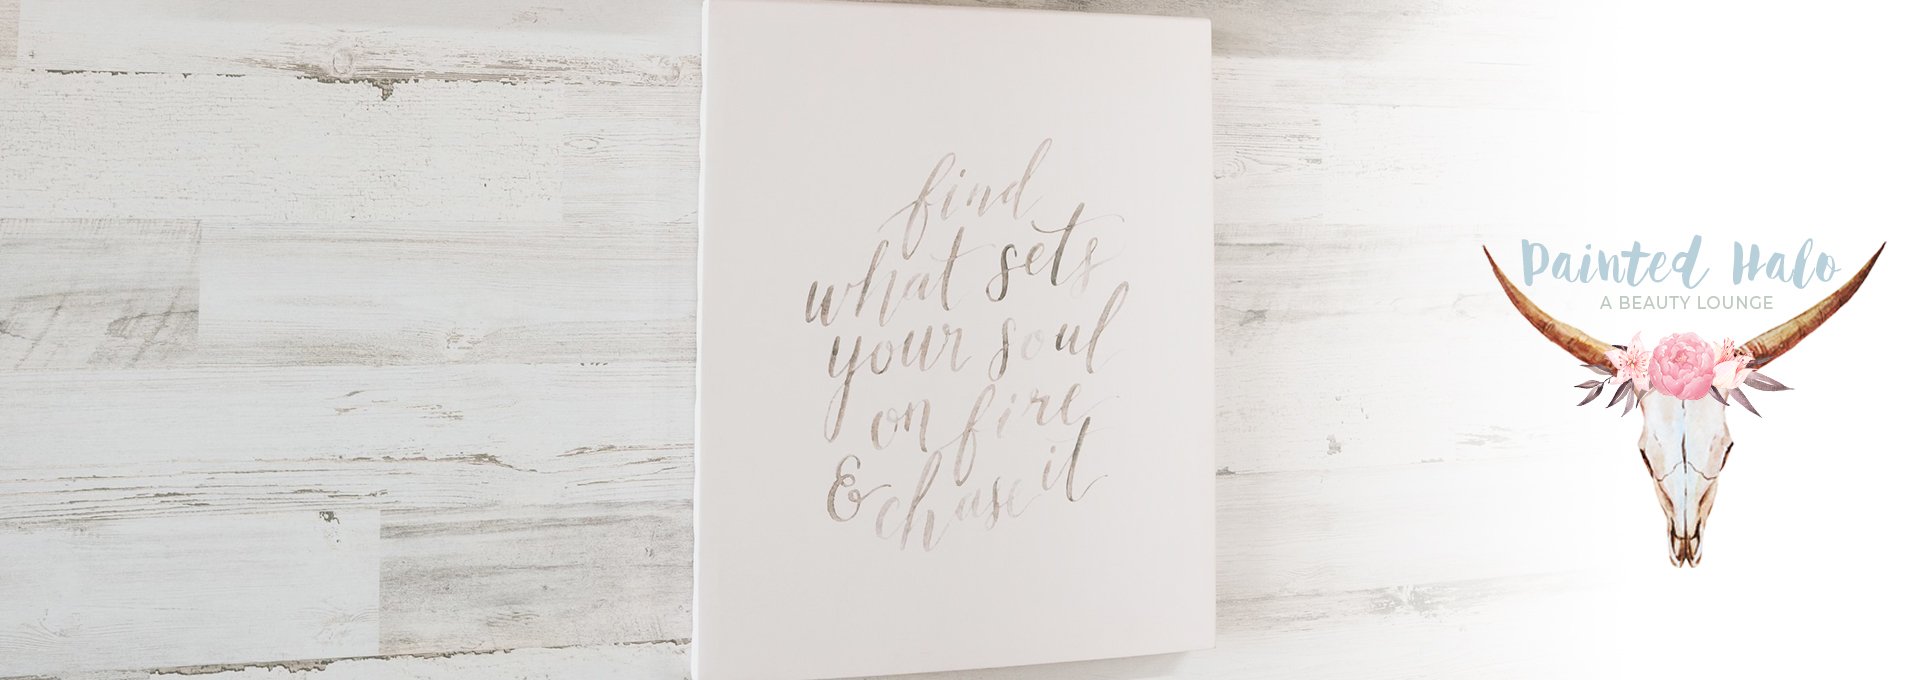 find
what sets
your soul
on fire
& chase it
Painted Halo
A BEAUTY LOUNGE